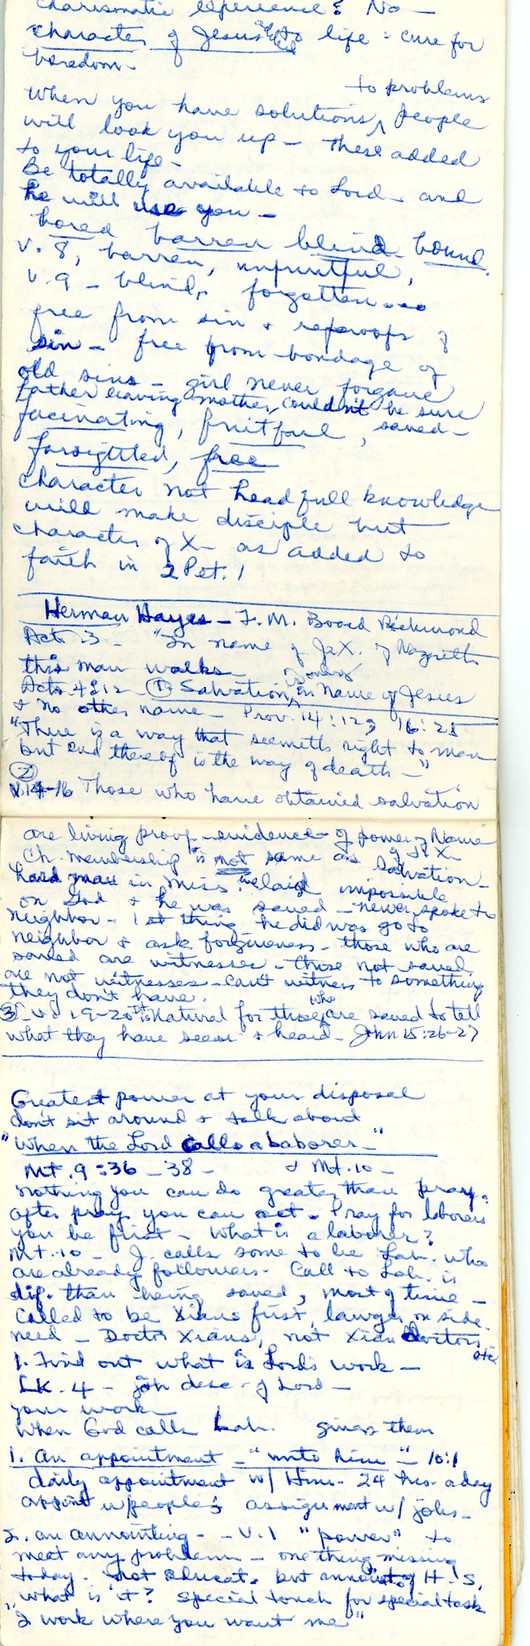 charismatic experience? No —
character of Jesus added to life = cure for
boredom.
to problems
When you have solutions ^ people
will look you up — these added
to your life.
Be totally available to Lord and
he will use you —
bored barren blind bound.
v. 8, barren, unfruitful,
v. 9 — blind, forgotten...
free from sin & reproofs of
sin — free from bondage of
old sins — girl never forgave
father leaving mother, couldn't be sure
facinating, fruitful, saved —
farsighted, free
character not head full knowledge
will make disciple but
character of X — as added to
faith in 2 Pet. 1
Herman Hayes — F. M. Board Richmond
Acts 3 — "In name of J. X. of Nazareth
this man walks —
is only
Acts 4:12 — ① Salvation ^ in name of Jesus
& no other name — Prov. 14:12; 16:25
"There is a way that seemeth right to man
but end thereof is the way of death —"
②
v. 14-16 Those who have obtained salvation
are living proof — evidence of power of Name
of J. X.
Ch. membership is not same as salvation —
hard man in Miss. laid impossible
on God & he was saved — never spoke to
neighbor — 1st thing he did was go to
neighbor & ask forgiveness — those who are
saved are witnesses — those not saved
are not witnesses — can't witness to something
they don't have.
③ v. 19-20 — it is natural for those who are saved to tell
what they have seen & heard — John 15:26-27
Greatest power at your disposal
don't sit around & talk about
"When the Lord Calls a Laborer —"
Mt. 9:36-38 — & Mt. 10 —
nothing you can do greater than pray.
after pray you can act. Pray for laborers
you be first — What is a laborer?
Mt. 10 — J. calls some to be Lab. who
are already followers. Call to Lab. is
dif. than being saved, most of time —
Called to be Xians first, lawyer on side.
need — Doctor Xians, not Xian Doctors
etc.
1. Find out what is Lord's work —
Lk. 4 — job desc. of Lord —
your work
When God calls Lab. gives them
1. An appointment — "unto him" — 10:1
daily appointment w/ Him — 24 hrs. a day
appoint w/people; assignment w/ jobs —
2. an annointing — v. 1 "power" to
meet any problem — one thing missing
today. Not educat. but annointing of H. S.
what is it? special touch for special task
"I work where you want me"